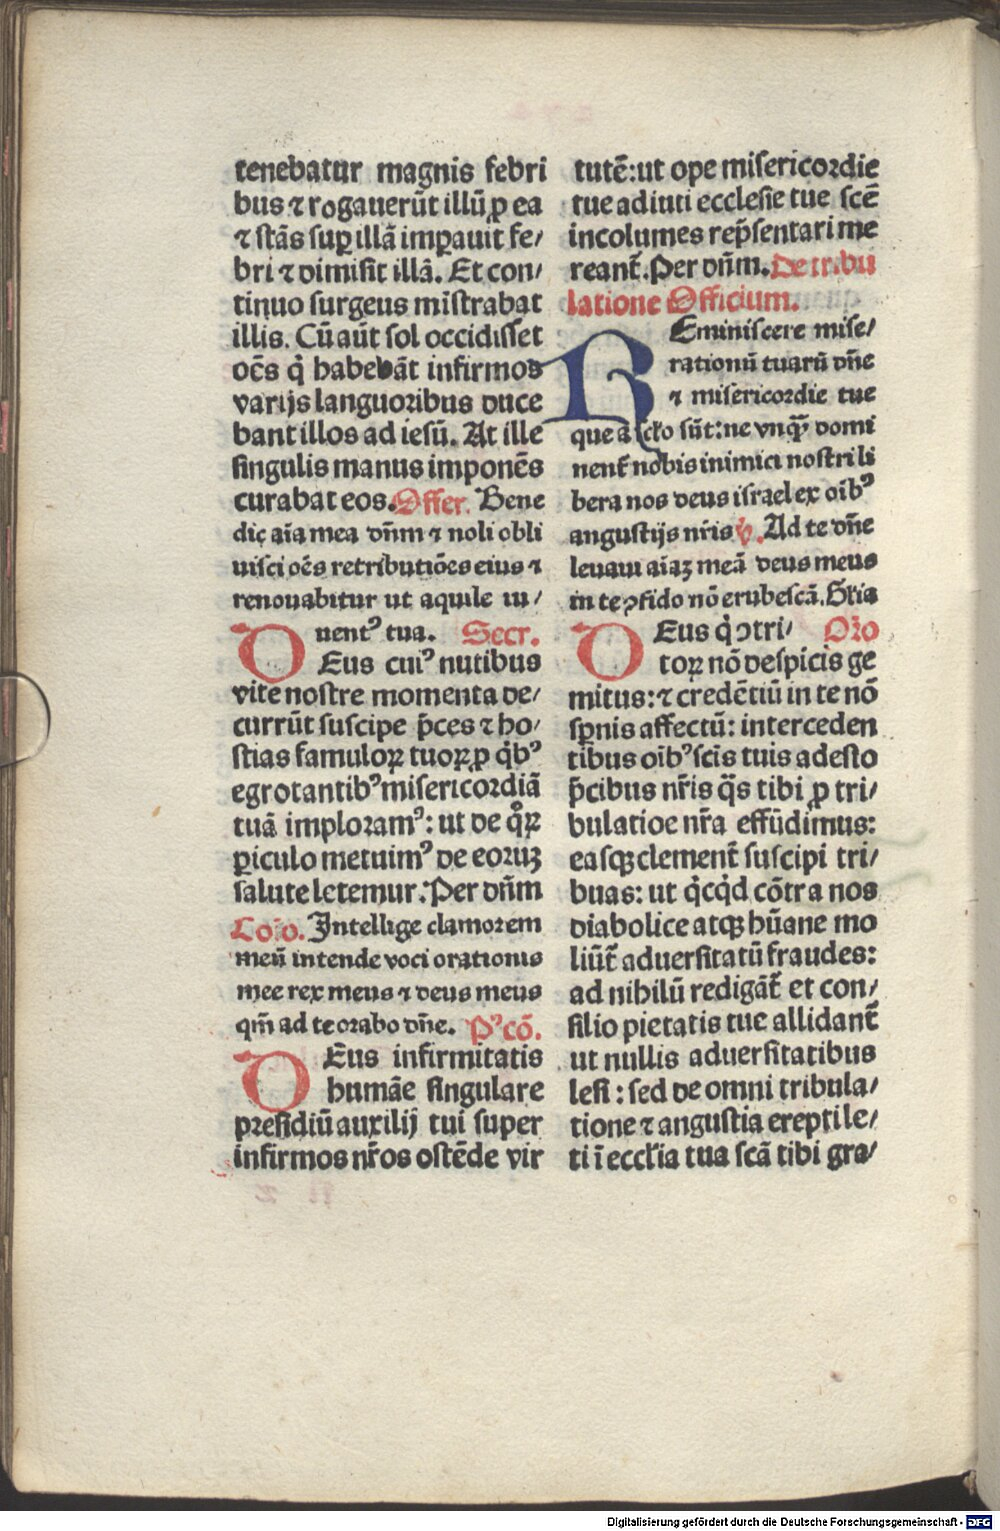 tenebatur magnis febri
bus ⁊ rogauerūt illū ꝓ ea
⁊ stās suꝑ illā imꝑauit fe/
bri ⁊ dimisit illā. Et con/
tinuo surgeus mīstrabat
illis. Cū aūt sol occidisset
oēs q̇ habebāt infirmos
varijs languoribus duce
bant illos ad iesū. At ille
singulis manus imponēs
curabat eos. Offer. Bene
dic aīa mea dn̄m ⁊ noli obli
uisci oēs retributiōes eius ⁊
renouabitur ut aquile iu/
uentꝰ tua. Secr.
DEus cuiꝰ nutibus
vite nostre momenta de/
currūt suscipe p̄ces ⁊ ho/
stias famuloꝝ tuoꝝ ꝓ q̇bꝰ
egrotantibꝰ misericordiā
tuā imploramꝰ: ut de q̊ꝝ
ꝑiculo metuimꝰ de eoruꝫ
salute letemur. Per dn̄m
Co͞io. Intellige clamorem
meū intende voci orationis
mee rex meus ⁊ deus meus
qm̄ ad te orabo dn̄e. Pꝰ cō.
DEus infirmitatis
humāe singulare
presidiū auxilij tui super
infirmos nr̄os ostēde vir
tutē: ut ope misericordie
tue adiuti ecclesie tue scē
incolumes rep̄sentari me
reant̄. Per dn̄m. De tribu
latione Officium.
REminiscere mise/
rationū tuarū dn̄e
⁊ misericordie tue
que a sclo sūt: ne vnqꝫ̄ domi
nent̄ nobis inimici nostri li
bera nos deus israel ex oībꝰ
angustijs nr̄is ℣. Ad te dn̄e
leuaui aīaꝫ meā deus meus
in te ꝯfido nō erubescā. Gl̄ia
DEus q̇ ꝯtri/ Or̄o
toꝝ nō despicis ge
mitus: ⁊ credētiū in te nō
sꝑnis affectū: interceden
tibus oībꝰ scīs tuis adesto
p̄cibus nr̄is q̄s tibi ꝓ tri/
bulatioe nr̄a effūdimus:
easqꝫ clement̄ suscipi tri/
buas: ut q̇cq̇d cōtra nos
diabolice atqꝫ hūane mo
liūt̄ aduersitatū fraudes:
ad nihilū redigāt̄ et con/
silio pietatis tue allidant̄
ut nullis aduersitatibus
lesi: sed de omni tribula/
tione ⁊ angustia erepti le/
ti ī eccl̄ia tua scā tibi gra/
Digitalisierung gefördert durch die Deutsche Forschungsgemeinschaft - DFG